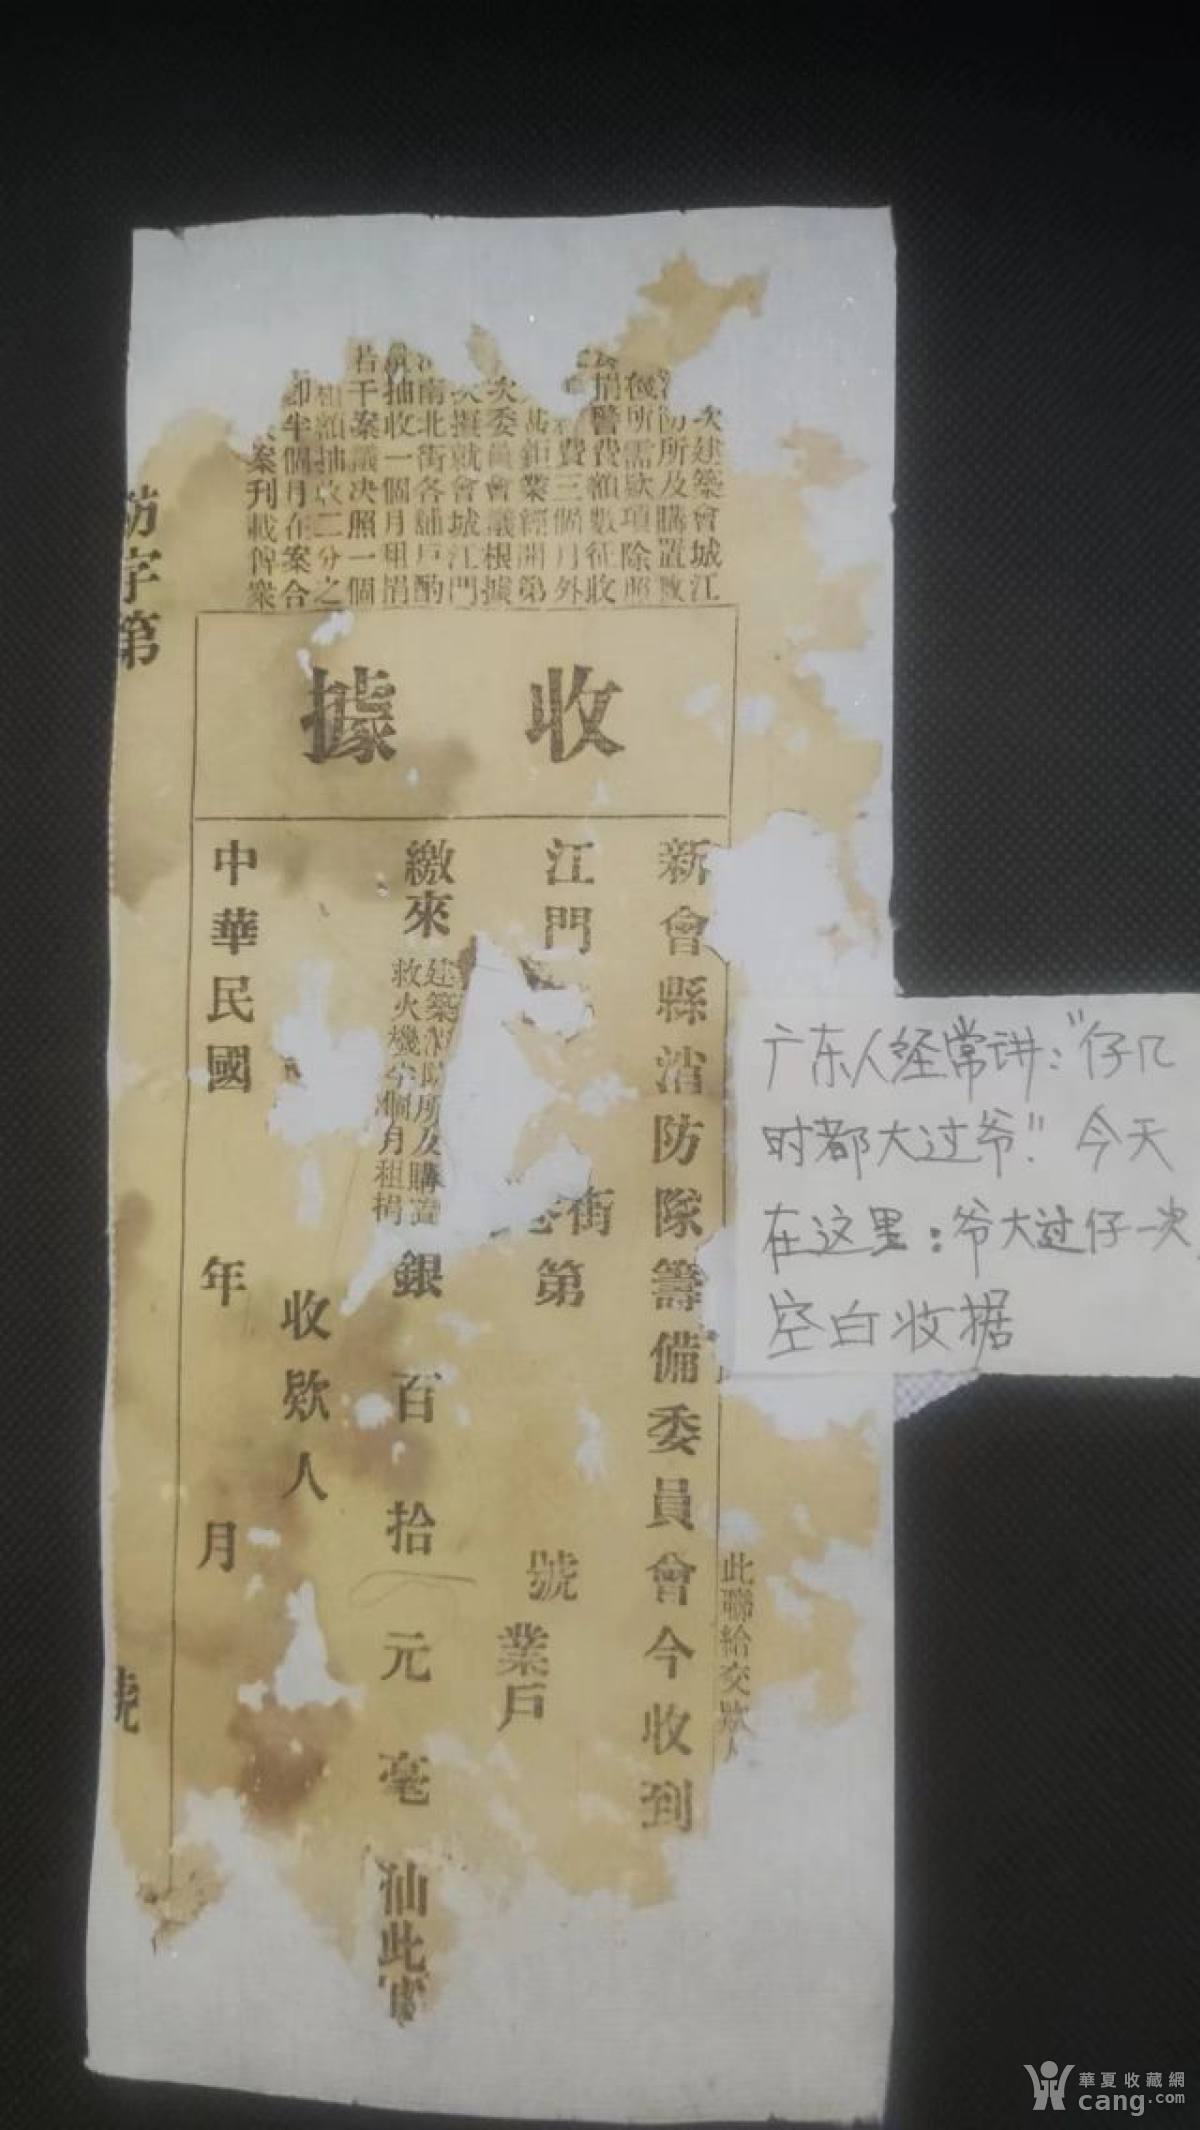 次建築會城江
防所及購置救
後所需欵項除照
捐警費額數征收
費三個月外
甚鉅業經開第
次委員會議根據
次擬就會城江門
南北街各舖戶酌
抽收一個月租捐
若干案議决照一個
租額抽收二分之
卽半個月在案合
案刊載俾衆
收據
此聯給交欵人
新會縣消防隊籌備委員會今收到
江門
街
第
號業戶
繳來
建築消防所及購置
救火機半個月租捐
銀
百
拾
元
毫
仙此
收欵人
中華民國
年
月
防字第
號
广东人经常讲："仔几
时都大过爷"今天
在这里：爷大过仔一次
空白收据
華夏收藏網
cang.com